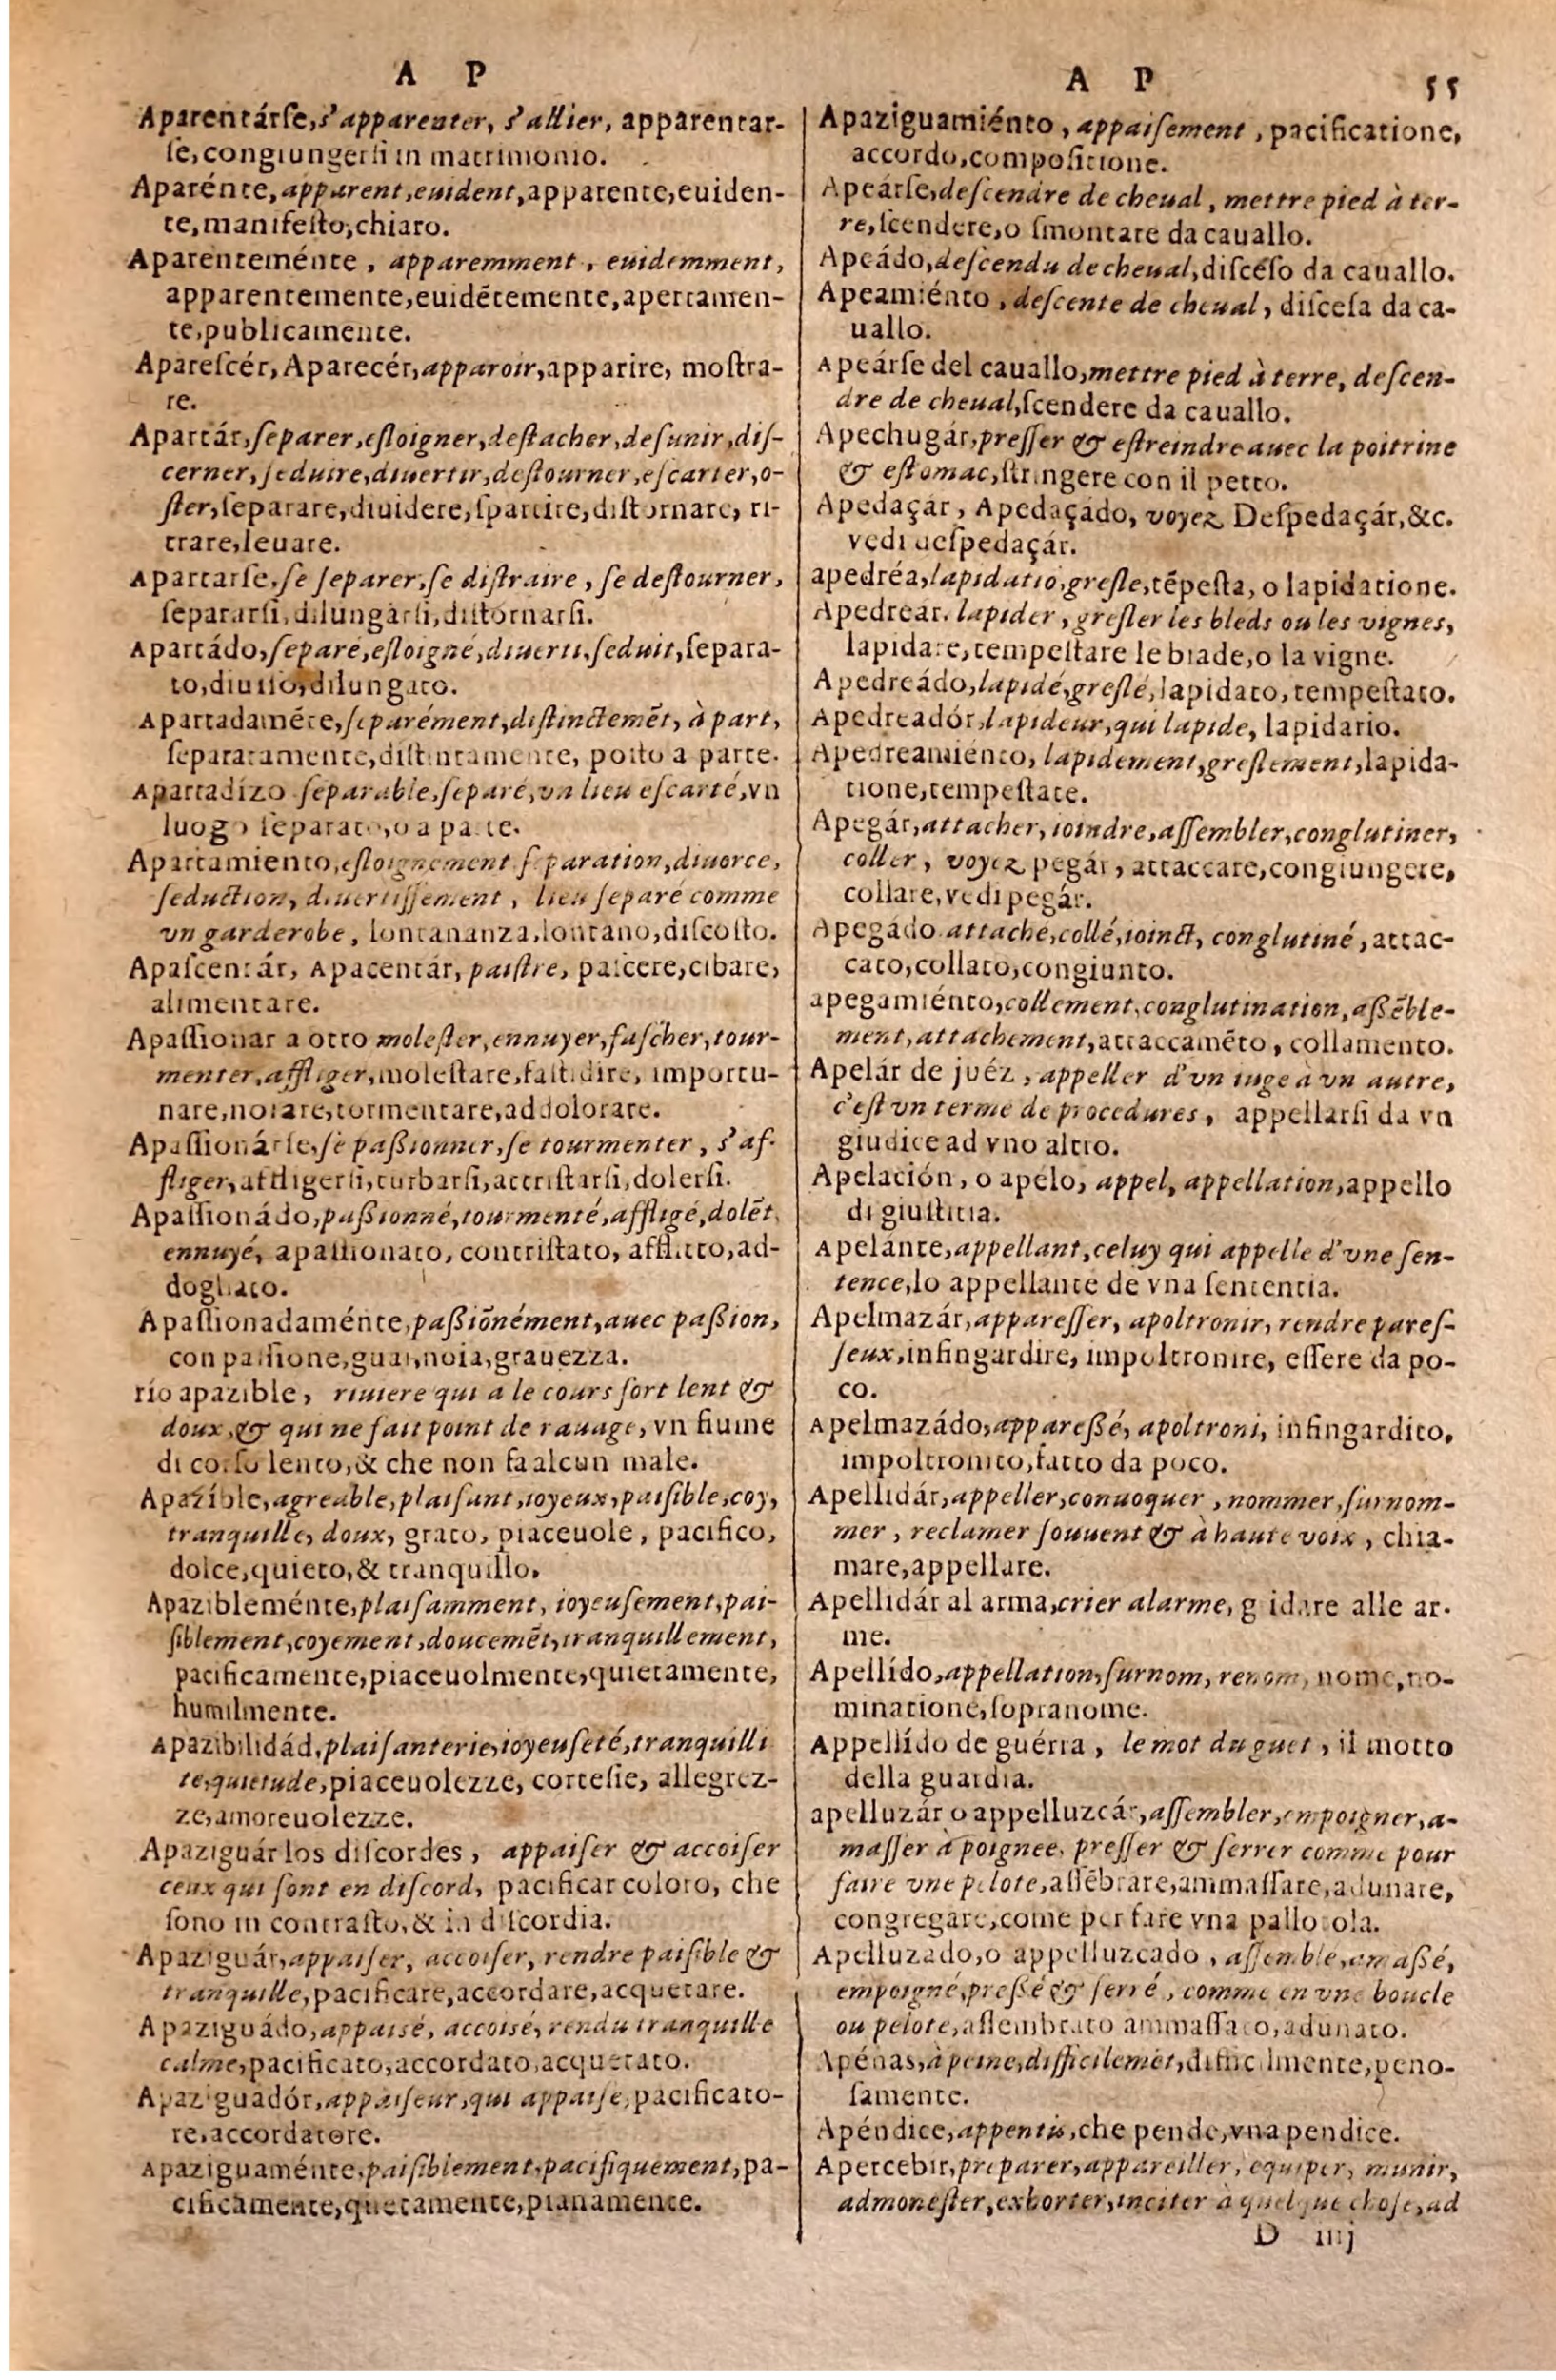 A P
Aparentárſe, s'apparenter, s'allier, apparentar-
ſe, congiungerſi in matrimonio.
Aparénte, apparent, euident, apparente, euiden-
te, manifeſto, chiaro.
Aparenteménte, apparemment, euidemment,
apparentemente, euidẽtemente, apertamen-
te, publicamente.
Apareſcér, Aparecér, apparoir, apparire, moſtra-
re.
Apartár, ſeparer, eſloigner, deſtacher, deſunir, diſ-
cerner, ſeduire, diuertir, deſtourner, eſcarter, o-
ſter, ſeparare, diuidere, ſpartire, diſtornare, ri-
trare, leuare.
Apartarſe, ſe ſeparer, ſe diſtraire, ſe deſtourner,
ſepararſi, dilungarſi, diſtornarſi.
Apartádo, ſeparé, eſloigné, diuerti, ſeduit, ſepara-
to, diuiſo, dilungato.
Apartadamẽte, ſeparément, diſtinctemẽt, à part,
ſeparatamente, diſtintamente, poſto a parte.
Apartadízo ſeparable, ſeparé, vn lieu eſcarté, vn
luogo ſeparato, o a parte.
Apartamiento, eſloignement ſeparation, diuorce,
ſeduction, diuertiſſement, lieu ſeparé comme
vn garderobe, lontananza, lontano, diſcoſto.
Apaſcentár, Apacentár, paiſtre, paſcere, cibare,
alimentare.
Apaſſionar a otro moleſter, ennuyer, faſcher, tour-
menter, affliger, moleſtare, faſtidire, importu-
nare, noiare, tormentare, addolorare.
Apaſſionárſe, ſe paßionner, ſe tourmenter, s'af-
fliger, affligerſi, turbarſi, attriſtarſi, dolerſi.
Apaſſionádo, paßionné, tourmenté, affligé, dolẽt,
ennuyé, apaſſionato, contriſtato, afflitto, ad-
dogliato.
Apaſſionadaménte, paßiõnément, auec paßion,
con paſſione, guai, noia, grauezza.
río apazible, riuiere qui a le cours fort lent &
doux, & qui ne fait point de rauage, vn fiume
di corſo lento, & che non fa alcun male.
Apazíble, agreable, plaiſant, ioyeux, paiſible, coy,
tranquille, doux, grato, piaceuole, pacifico,
dolce, quieto, & tranquillo.
Apazibleménte, plaiſamment, ioyeuſement, pai-
ſiblement, coyement, doucemẽt, tranquillement,
pacificamente, piaceuolmente, quietamente,
humilmente.
Apazibilidád, plaiſanterie, ioyeuſeté, tranquilli
té, quietude, piaceuolezze, corteſie, allegrez-
ze, amoreuolezze.
Apaziguár los diſcordes, appaiſer & accoiſer
ceux qui ſont en diſcord, pacificar coloro, che
ſono in contraſto, & in diſcordia.
Apaziguár, appaiſer, accoiſer, rendre paiſible &
tranquille, pacificare, accordare, acquetare.
Apaziguádo, appaisé, accoisé, rendu tranquille
calme, pacificato, accordato, acquetato.
Apaziguadór, appaiſeur, qui appaiſe, pacificato-
re, accordatore.
Apaziguaménte, paiſiblement, pacifiquement, pa-
cificamente, quetamente, pianamente.
A P 55
Apaziguamiénto, appaiſement, pacificatione,
accordo, compoſitione.
Apeárſe, deſcendre de cheual, mettre pied à ter-
re, ſcendere, o ſmontare da cauallo.
Apeádo, deſcendu de cheual, diſceſo da cauallo.
Apeamiénto, deſcente de cheual, diſceſa da ca-
uallo.
Apeárſe del cauallo, mettre pied à terre, deſcen-
dre de cheual, ſcendere da cauallo.
Apechugár, preſſer & eſtreindre auec la poitrine
& eſtomac, ſtringere con il petto.
Apedaçár, Apedaçádo, voyez Deſpedaçár, &c.
vedi deſpedaçár.
apedréa, lapidatiō, greſle, tẽpeſta, o lapidatione.
Apedreár, lapider, greſler les bleds ou les vignes,
lapidare, tempeſtare le biade, o la vigne.
Apedreádo, lapidé, greſlé, lapidato, tempeſtato.
Apedreadór, lapideur, qui lapide, lapidario.
Apedreamiénto, lapidement, greſlement, lapida-
tione, tempeſtate.
Apegár, attacher, ioindre, aſſembler, conglutiner,
coller, voyez pegár, attaccare, congiungere,
collare, vedi pegár.
Apegádo attaché, collé, ioinct, conglutiné, attac-
cato, collato, congiunto.
apegamiénto, collement, conglutination, aßẽble-
ment, attachement, attaccamẽto, collamento.
Apelár de juéz, appeller d'vn iuge à vn autre,
c'eſt vn terme de procedures, appellarſi da vn
giudice ad vno altro.
Apelación, o apélo, appel, appellation, appello
di giuſtitia.
Apelánte, appellant, celuy qui appelle d'vne ſen-
tence, lo appellante de vna ſententia.
Apelmazár, appareſſer, apoltronir, rendre pareſ-
ſeux, infingardire, impoltronire, eſſere da po-
co.
Apelmazádo, appareßé, apoltroni, infingardito,
impoltronito, fatto da poco.
Apellidár, appeller, conuoquer, nommer, ſurnom-
mer, reclamer ſouuent & à haute voix, chia-
mare, appellare.
Apellidár al arma, crier alarme, gridare alle ar-
me.
Apellído, appellation, ſurnom, renom, nome, no-
minatione, ſopranome.
Appellído de guérra, le mot du guet, il motto
della guardia.
apelluzár o appelluzcár, aſſembler, empoigner, a-
maſſer à poignee, preſſer & ſerrer comme pour
faire vne pelote, aſſẽbrare, ammaſſare, adunare,
congregare, come per fare vna pallotola.
Apelluzado, o appelluzcado, aſſemblé, amaßé,
empoigné, preßé & ſerré, comme en vne boucle
ou pelote, aſſembrato ammaſſato, adunato.
Apénas, à peine, difficilemẽt, difficilmente, peno-
ſamente.
Apéndice, appentis, che pende, vna pendice.
Apercebir, preparer, appareiller, equiper, munir,
admoneſter, exhorter, inciter à quelque choſe, ad
D iiij